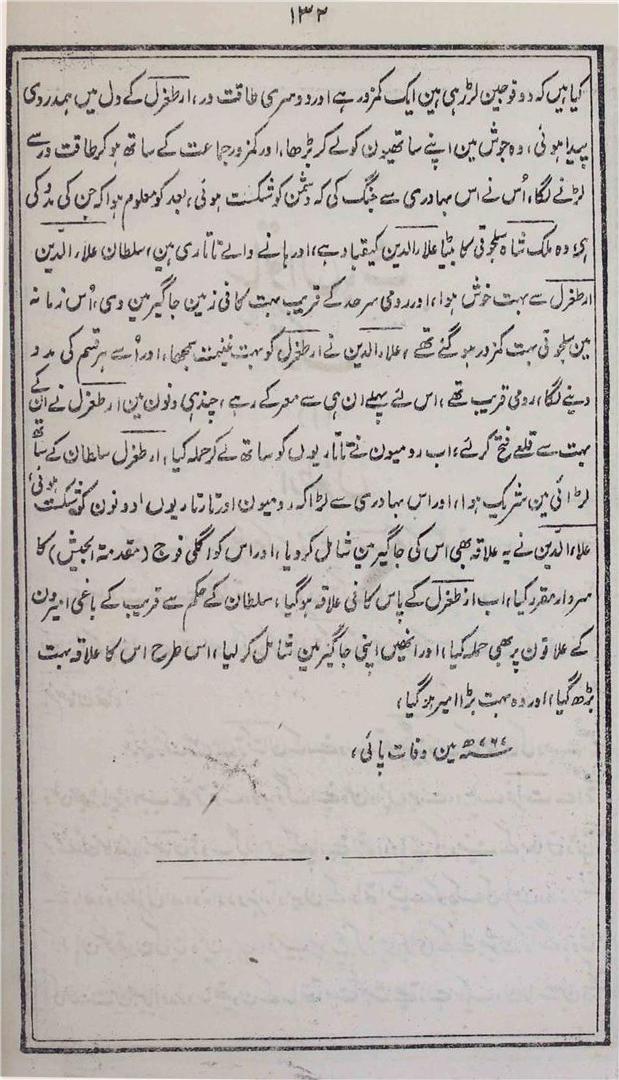 ۱۳۲
کیا ہیں کہ دو فوجین لڑ رہی ہین ایک کمزور ہے اور دوسری طاقت ور، ارطغرل کے دل میں ہمدردی
پیدا ہوئی، وہ جوش مین اپنے ساتھیون کو لے کر بڑھا، اور کمزور جماعت کے ساتھ ہو کر طاقت ور سے
لڑنے لگا، اُس نے اس بہادری سے جنگ کی کہ دشمن کو شکست ہوئی، بعد کو معلوم ہوا کہ جن کی مدد کی
ہی، وہ ملک شاہ سلجوقی کا بیٹا علاء الدین کیقباد ہے، اور ہانے والے تاتاری ہین، سلطان علاء الدین
ارطغرل سے بہت خوش ہوا، اور رومی سرحد کے قریب بہت کافی زمین جاگیر مین دی، اُس زمانہ
مین سلجوقی بہت کمزور ہو گئے تھے، علاء الدین نے ارطغرل کو بہت غنیمت سمجھا، اور اُسے ہر قسم کی مدد
دینے لگا، رومی قریب تھے، اس لئے پہلے ان ہی سے معرکے رہے، چند ہی دنون مین ارطغرل نے ان کے
بہت سے قلعے فتح کر لئے، اب رومیون نے تاتاریوں کو ساتھ لے کر حملہ کیا، ارطغرل سلطان کے ساتھ
لڑائی مین شریک ہوا، اور اس بہادری سے لڑا کہ رومیون اور تاتاریوں دونون کو شکست ہوئی،
علاء الدین نے یہ علاقہ بھی اس کی جاگیر مین شامل کر دیا، اور اس کو اگلی فوج (مقدمۃ الجیش) کا
سردار مقرر کیا، اب ارطغرل کے پاس کافی علاقہ ہو گیا، سلطان کے حکم سے قریب کے باغی امیرون
کے علاقون پر بھی حملہ کیا، اور انھیں اپنی جاگیر مین شامل کر لیا، اس طرح اس کا علاقہ بہت
بڑھ گیا، اور وہ بہت بڑا امیر ہو گیا،
مین وفات پائی،